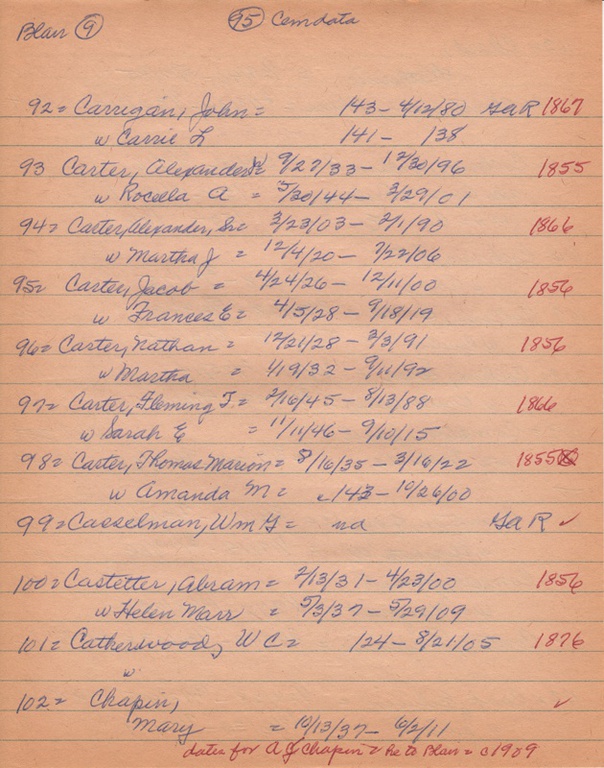 Blair 9 95 Cemdata
92 = Carrigan, John = 143 - 4/12/80 GaR 1867
w Carrie L 141 - 138
93 Carter, Alexander 9/27/33 - 12/30/96 1855
w Rocella A = 5/30/44 - 3/29/01
94 = Carter, Alexander, Sr = 3/23/03 - 2/1/90 1866
w Martha J = 12/4/20 - 7/22/06
95 = Carter, Jacob = 4/24/26 - 12/11/00 1856
w Frances E = 4/5/28 - 9/18/19
96 = Carter, Nathan = 12/21/28 - 3/3/91 1856
w Martha = 4/19/32 - 9/11/92
97 = Carter, Fleming T. = 2/16/45 - 8/13/88 1866
w Sarah E = 11/11/46 - 9/10/15
98 = Carter, Thomas Marion = 8/16/35 - 3/16/22 1855
w Amanda M = c143 - 10/26/00
99 = Casselman, Wm G = nd GaR ✓
100 = Castetter, Abram = 2/13/31 - 4/23/00 1856
w Helen Marr = 5/3/37 - 5/29/09
101 = Catherwood, W C = 124 - 8/21/05 1876
w
102 = Chapin, ✓
Mary = 10/13/37 - 6/2/11
dates for A J Chapin = Re to Blair = c1909